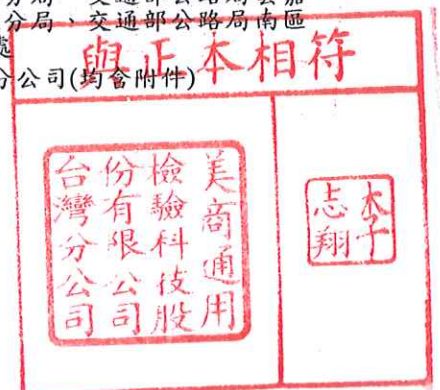 分局、交通部公路局南區
處
分公司(均含附件)
與正本相符
美商通用
檢驗科技股
份有限公司
台灣分公司
李
志翔